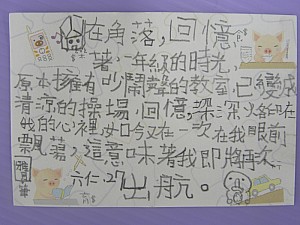 在角落,回憶
著一年級的時光,
原本擁有吵鬧聲的教室,已變成
清涼的操場,回憶,深深烙印在
我的心裡,如今又在一次在我眼前
飄蕩,這意味著我即將再次
六仁.27出航。